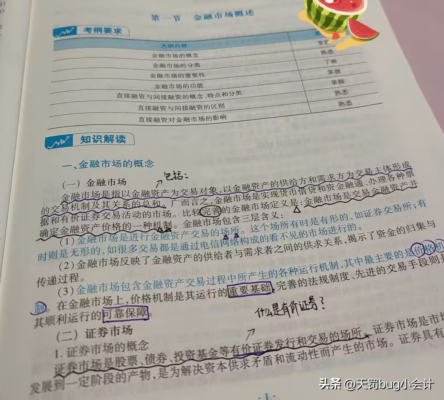 第一节 金融市场概述
考纲要求
金融市场的概念 熟悉
金融市场的分类 了解
金融市场的重要性 掌握
金融市场的功能 掌握
直接融资与间接融资的概念、特点和分类 熟悉
直接融资与间接融资的区别 熟悉
直接融资对金融市场的影响
知识解读
一、金融市场的概念
包括：
（一）金融市场
金融市场是指以金融资产为交易对象，以金融资产的供给方和需求方为交易主体形成
的交易机制及其关系的总和。广而言之，金融市场是实现货币借贷和资金融通、办理各种票
据和有价证券交易活动的市场。比较完善的金融市场定义是：金融市场是交易金融资产并
确定金融资产价格的一种机制。金融市场包含三层含义：
（1）金融市场是进行金融资产交易的场所。这个场所有时是有形的，如证券交易所；有
时则是无形的，如很多交易都是通过电信网络构成的看不见的市场进行的。
（2）金融市场反映了金融资产的供给者与需求者之间的供求关系，揭示了资金的归集与
传递过程。
（3）金融市场包含金融资产交易过程中所产生的各种运行机制，其中最主要的是价格机
制。在金融市场上，价格机制是其运行的重要基础，完善的法规制度、先进的交易手段则是
其顺利运行的可靠保障。
什么是有价证券？
（二）证券市场
1. 证券市场的概念
证券市场是股票、债券、投资基金等有价证券发行和交易的场所。证券市场是市场
发展到一定阶段的产物，是为解决资本供求矛盾和流动性而产生的市场。证券具有
头条 @天罚bug小会计